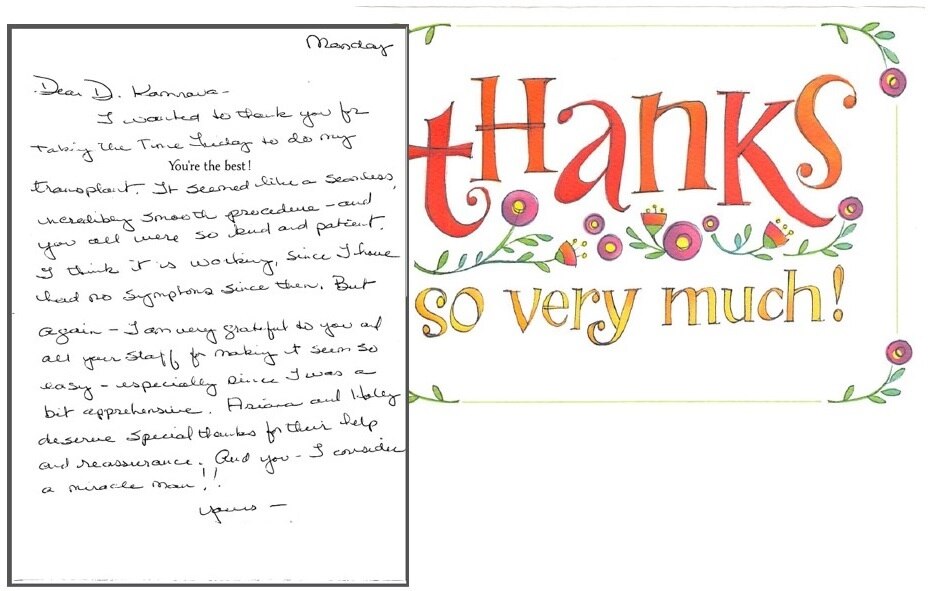 Monday
Dear D. Kamrava -
I wanted to thank you for
taking the time Friday to do my
You're the best!
transplant. It seemed like a seamless,
incredibly smooth procedure - and
you all were so kind and patient.
I think it is working, since I have
had no symptoms since then. But
again - I am very grateful to you and
all your staff for making it seem so
easy - especially since I was a
bit apprehensive. and
deserve special thanks for their help
and reassurance. And you - I consider
a miracle man!!
Yours -
thanks
so very much!